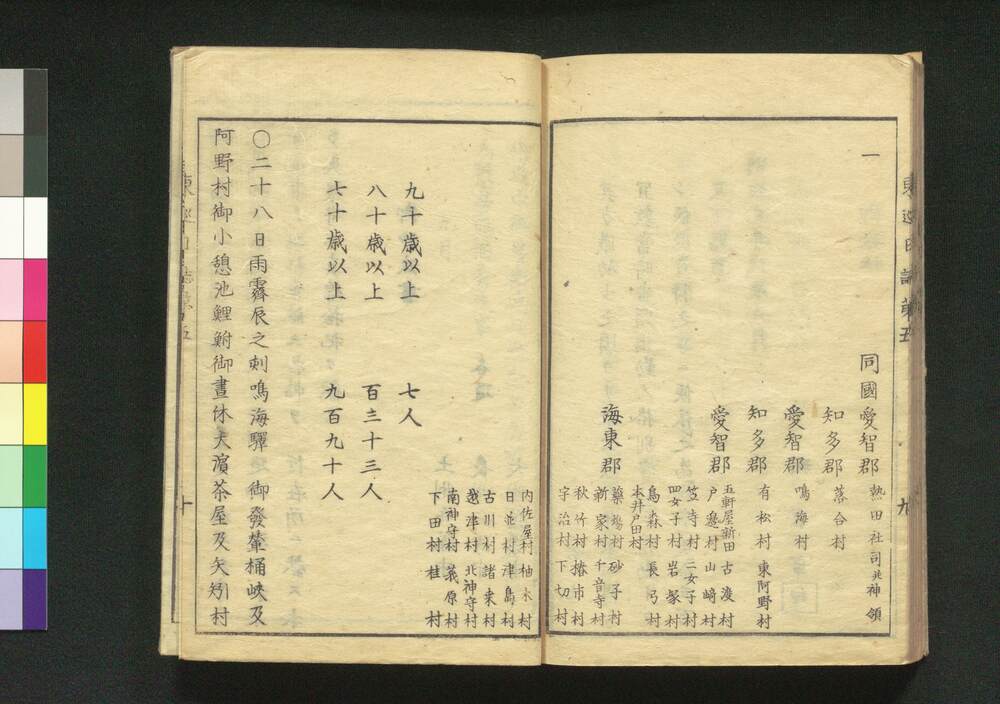 東巡日誌第五
九
一
同國愛智郡 熱田社司共神領
知多郡 落合村
愛智郡 鳴海村
知多郡 有松村 東阿野村
愛智郡 五軒屋新田 古渡村
戸邊村 山崎村
笠寺村 二女子村
四女子村 岩塚村
烏森村 長弓村
本井戸田村
海東郡 砂子村
新家村 千音寺村
秋竹村 椿市村
宇治村 下切村
内佐屋村 柚木村
日並村 津島村
古川村 諸桒村
越津村 北神守村
南神守村 莪原村
下田村 桂村
九十歳以上 七人
八十歳以上 百三十三人
七十歳以上 九百九十人
〇二十八日雨霽辰之刻鳴海驛御發輦桶峽及
阿野村御小憩池鯉鮒御晝休大濵茶屋及矢矧村
十